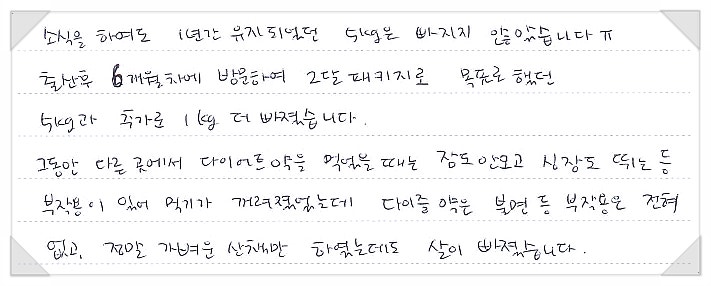 소식을 하여도 1년간 유지되었던 5kg은 빠지지 않았습니다 ㅠ
출산후 6개월차에 방문하여 2달 패키지로 목표로 했던
5kg과 추가로 1kg 더 빠졌습니다.
그동안 다른 곳에서 다이어트약을 먹었을 때는 잠도 안오고 심장도 뛰는 등
부작용이 있어 먹기가 꺼려졌었는데 다이줄 약은 불면 등 부작용은 전혀
없고, 정말 가벼운 산책만 하였는데도 살이 빠졌습니다.